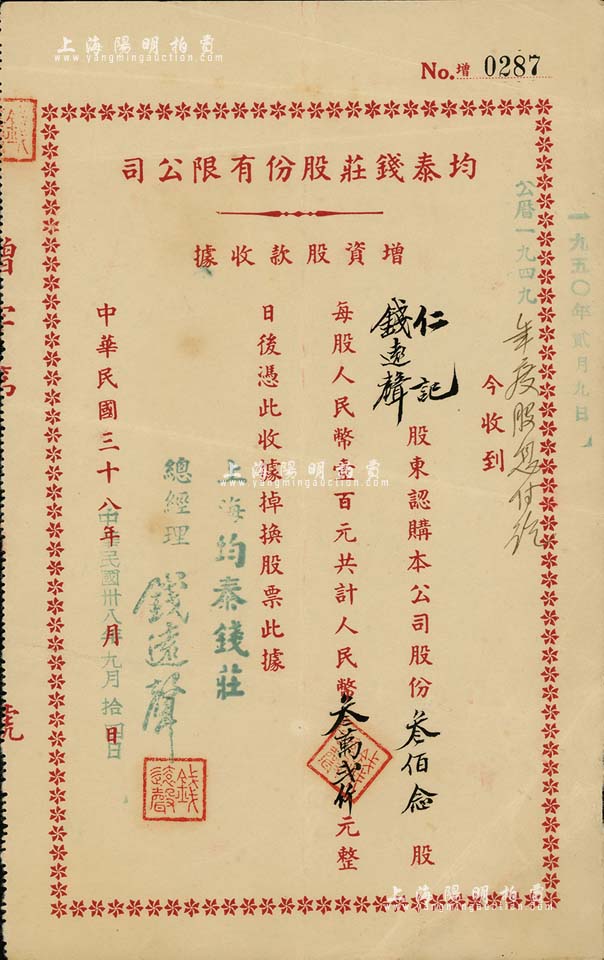 上海陽明拍賣
www.yangmingauction.com
No. 增 0287
均泰錢莊股份有限公司
增資股款收據
一九五〇年貳月九日
公曆一九四九
年度股息付訖
今收到
仁記
錢遠聲
股東認購本公司股份叁佰念股
每股人民幣壹百元共計人民幣叁萬弍仟元整
日後憑此收據掉換股票此據
上海均泰錢莊
總經理 錢遠聲
錢遠聲
中華民國三十八年 月 日
中華民國卅八年九月拾四日
上海陽明拍賣
www.yangmingauction.com
上海陽明拍賣
www.yangmingauction.com